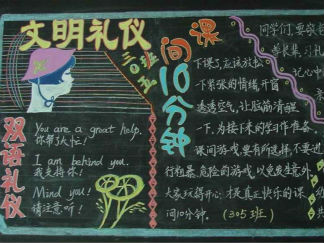 文明礼仪
三〇五班
双语礼仪
You are a great help.
你帮了大忙!
I am behind you.
我支持你!
Mind you!
请注意听!
课间10分钟
下课了,应该放松一
下紧张的情绪,开窗
透透空气,让脑筋清醒
一下,为接下来的学习作准备。
课间游戏要有所选择,不要进
行粗暴、危险的游戏,以免发生意外。
大家玩得开心,才是真正快乐的课
间10分钟。(305班)
同学们,要